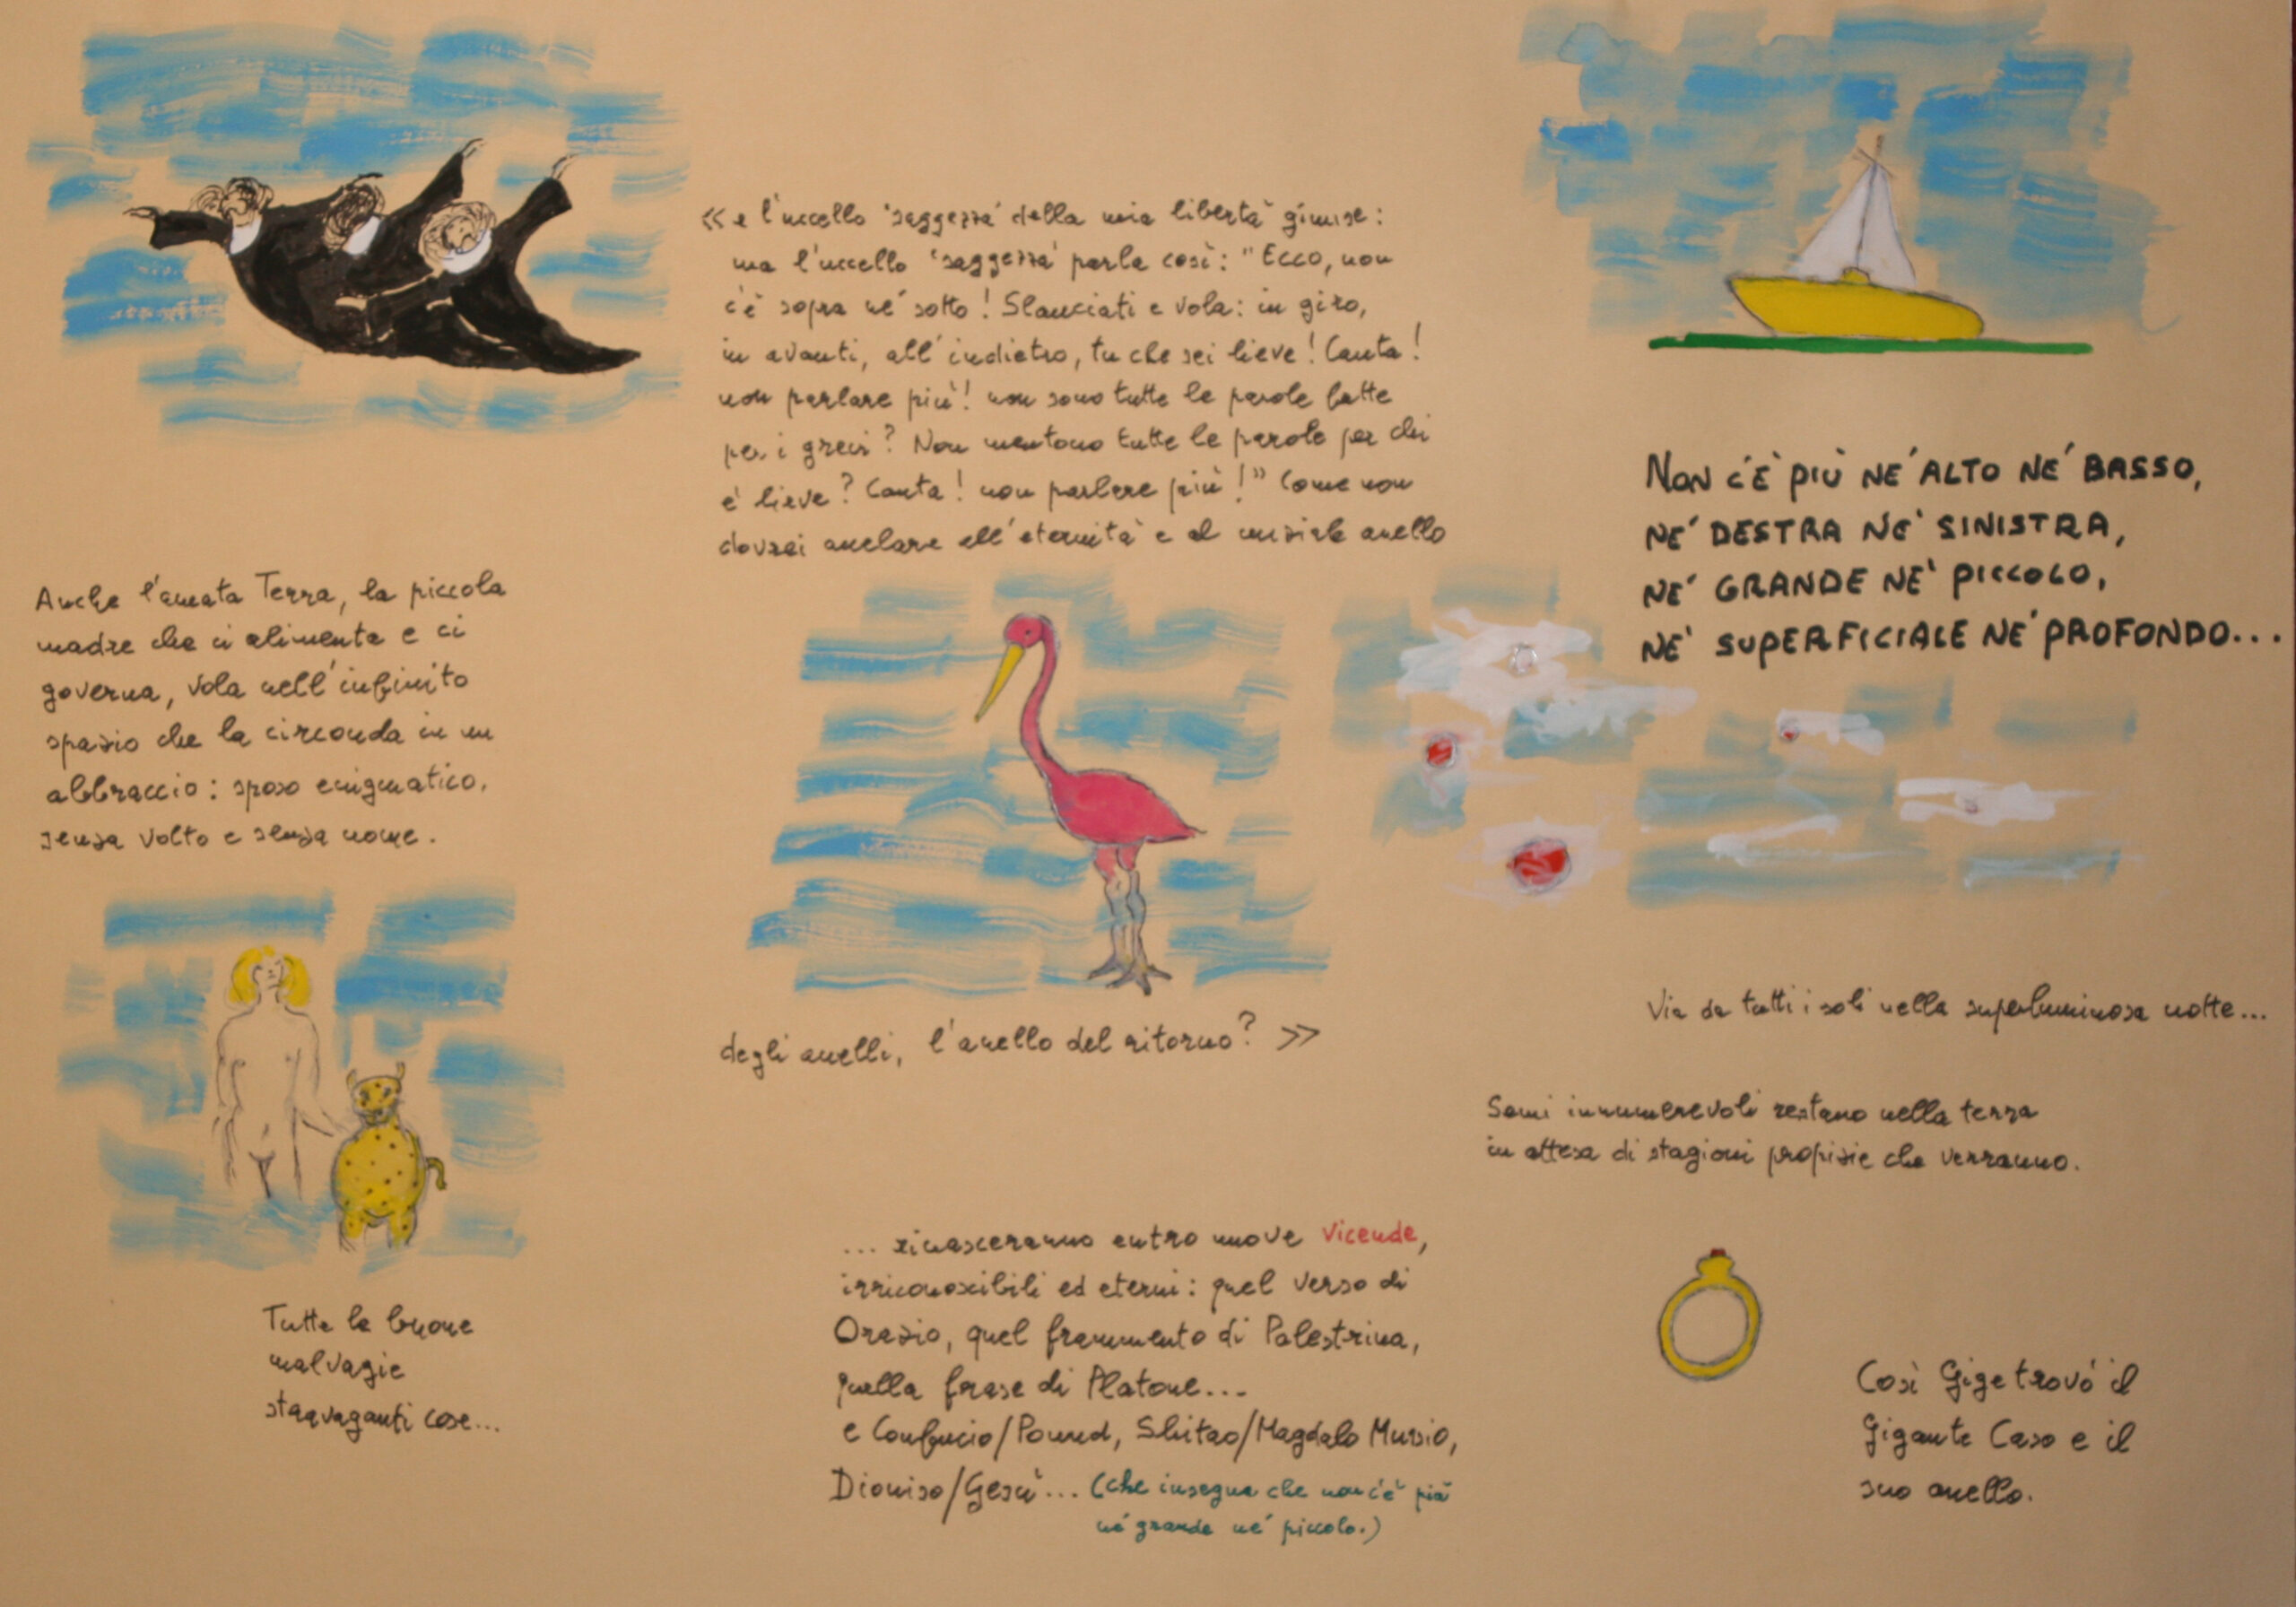 Anche l'amata Terra, la piccola
madre che ci alimenta e ci
governa, vola nell'infinito
spazio che la circonda in un
abbraccio: sposo enigmatico,
senza volto e senza nome.
Tutte le buone
malvagie
stravaganti cose...
«e l'uccello 'saggezza' della mia libertà gimise:
ma l'uccello 'saggezza' parla così: "Ecco, non
c'è sopra né sotto! Slanciati e vola: in giro,
in avanti, all'indietro, tu che sei lieve! Canta!
non parlare più! non sono tutte le parole fatte
per i grevi? Non mentono tutte le parole per chi
è lieve? Canta! non parlare più!" Come non
dovrei anelare all'eternità e al nuziale anello
degli anelli, l'anello del ritorno?»
... rinasceranno entro nuove vicende,
irriconoscibili ed eterni: quel verso di
Orazio, quel frammento di Palestrina,
quella frase di Platone...
e Confucio/Pound, Shitao/Magdalo Mussio,
Dioniso/Gesù... (che insegna che non c'è più
né grande né piccolo.)
NON C'È PIÙ NÉ ALTO NÉ BASSO,
NÉ DESTRA NÉ SINISTRA,
NÉ GRANDE NÉ PICCOLO,
NÉ SUPERFICIALE NÉ PROFONDO...
Via da tutti i soli nella superluminosa notte...
Semi innumerevoli restano nella terra
in attesa di stagioni propizie che verranno.
Così Gige trovò il
Gigante Caso e il
suo anello.